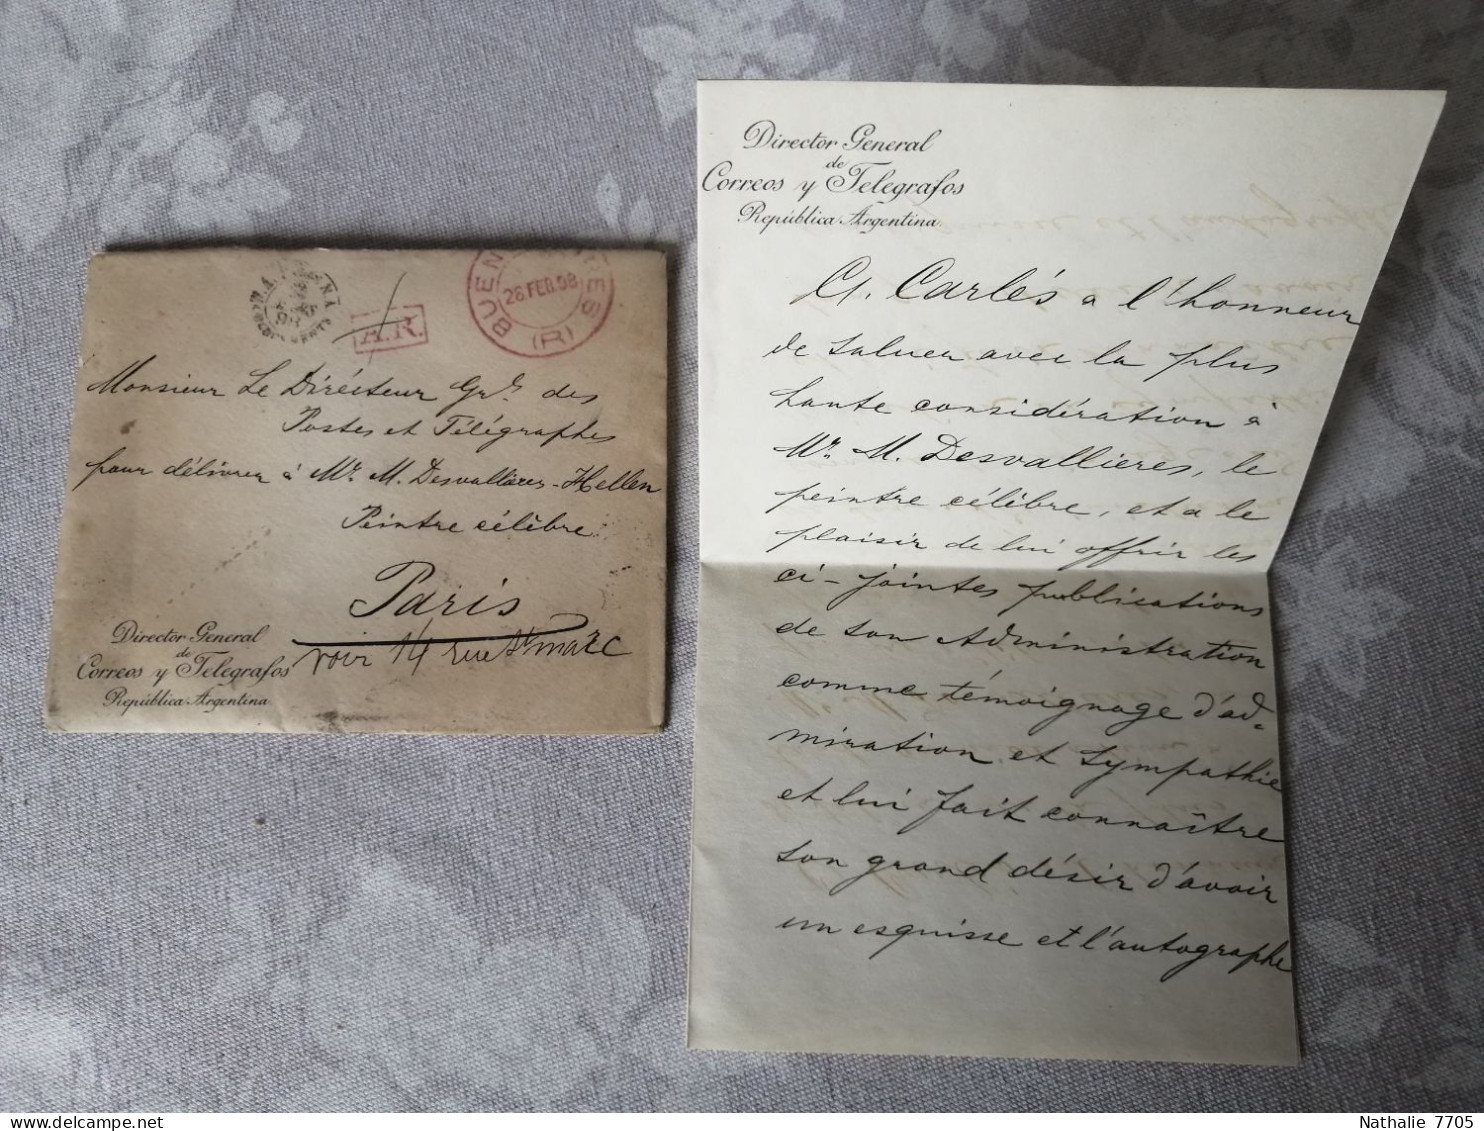 BUENOS AIRES
26 FEB. 98
(R)
A.R.
Monsieur Le Dirécteur Grl. des
Postes et Télégraphes
pour délivrer à Mr. M. Desvallières-Hellen
Peintre célèbre
Paris
voir 14 rue St marc
Director General
de
Correos y Telegrafos
República Argentina
Director General
de
Correos y Telegrafos
República Argentina
Carlés a l'honneur
de saluer avec la plus
haute considération à
Mr. M. Desvallieres, le
peintre célèbre, et a le
plaisir de lui offrir les
ci-jointes publications
de son Administration
comme témoignage d'ad-
miration et sympathie
et lui fait connaître
son grand désir d'avoir
un esquisse et l'autographe
Nathalie 7705